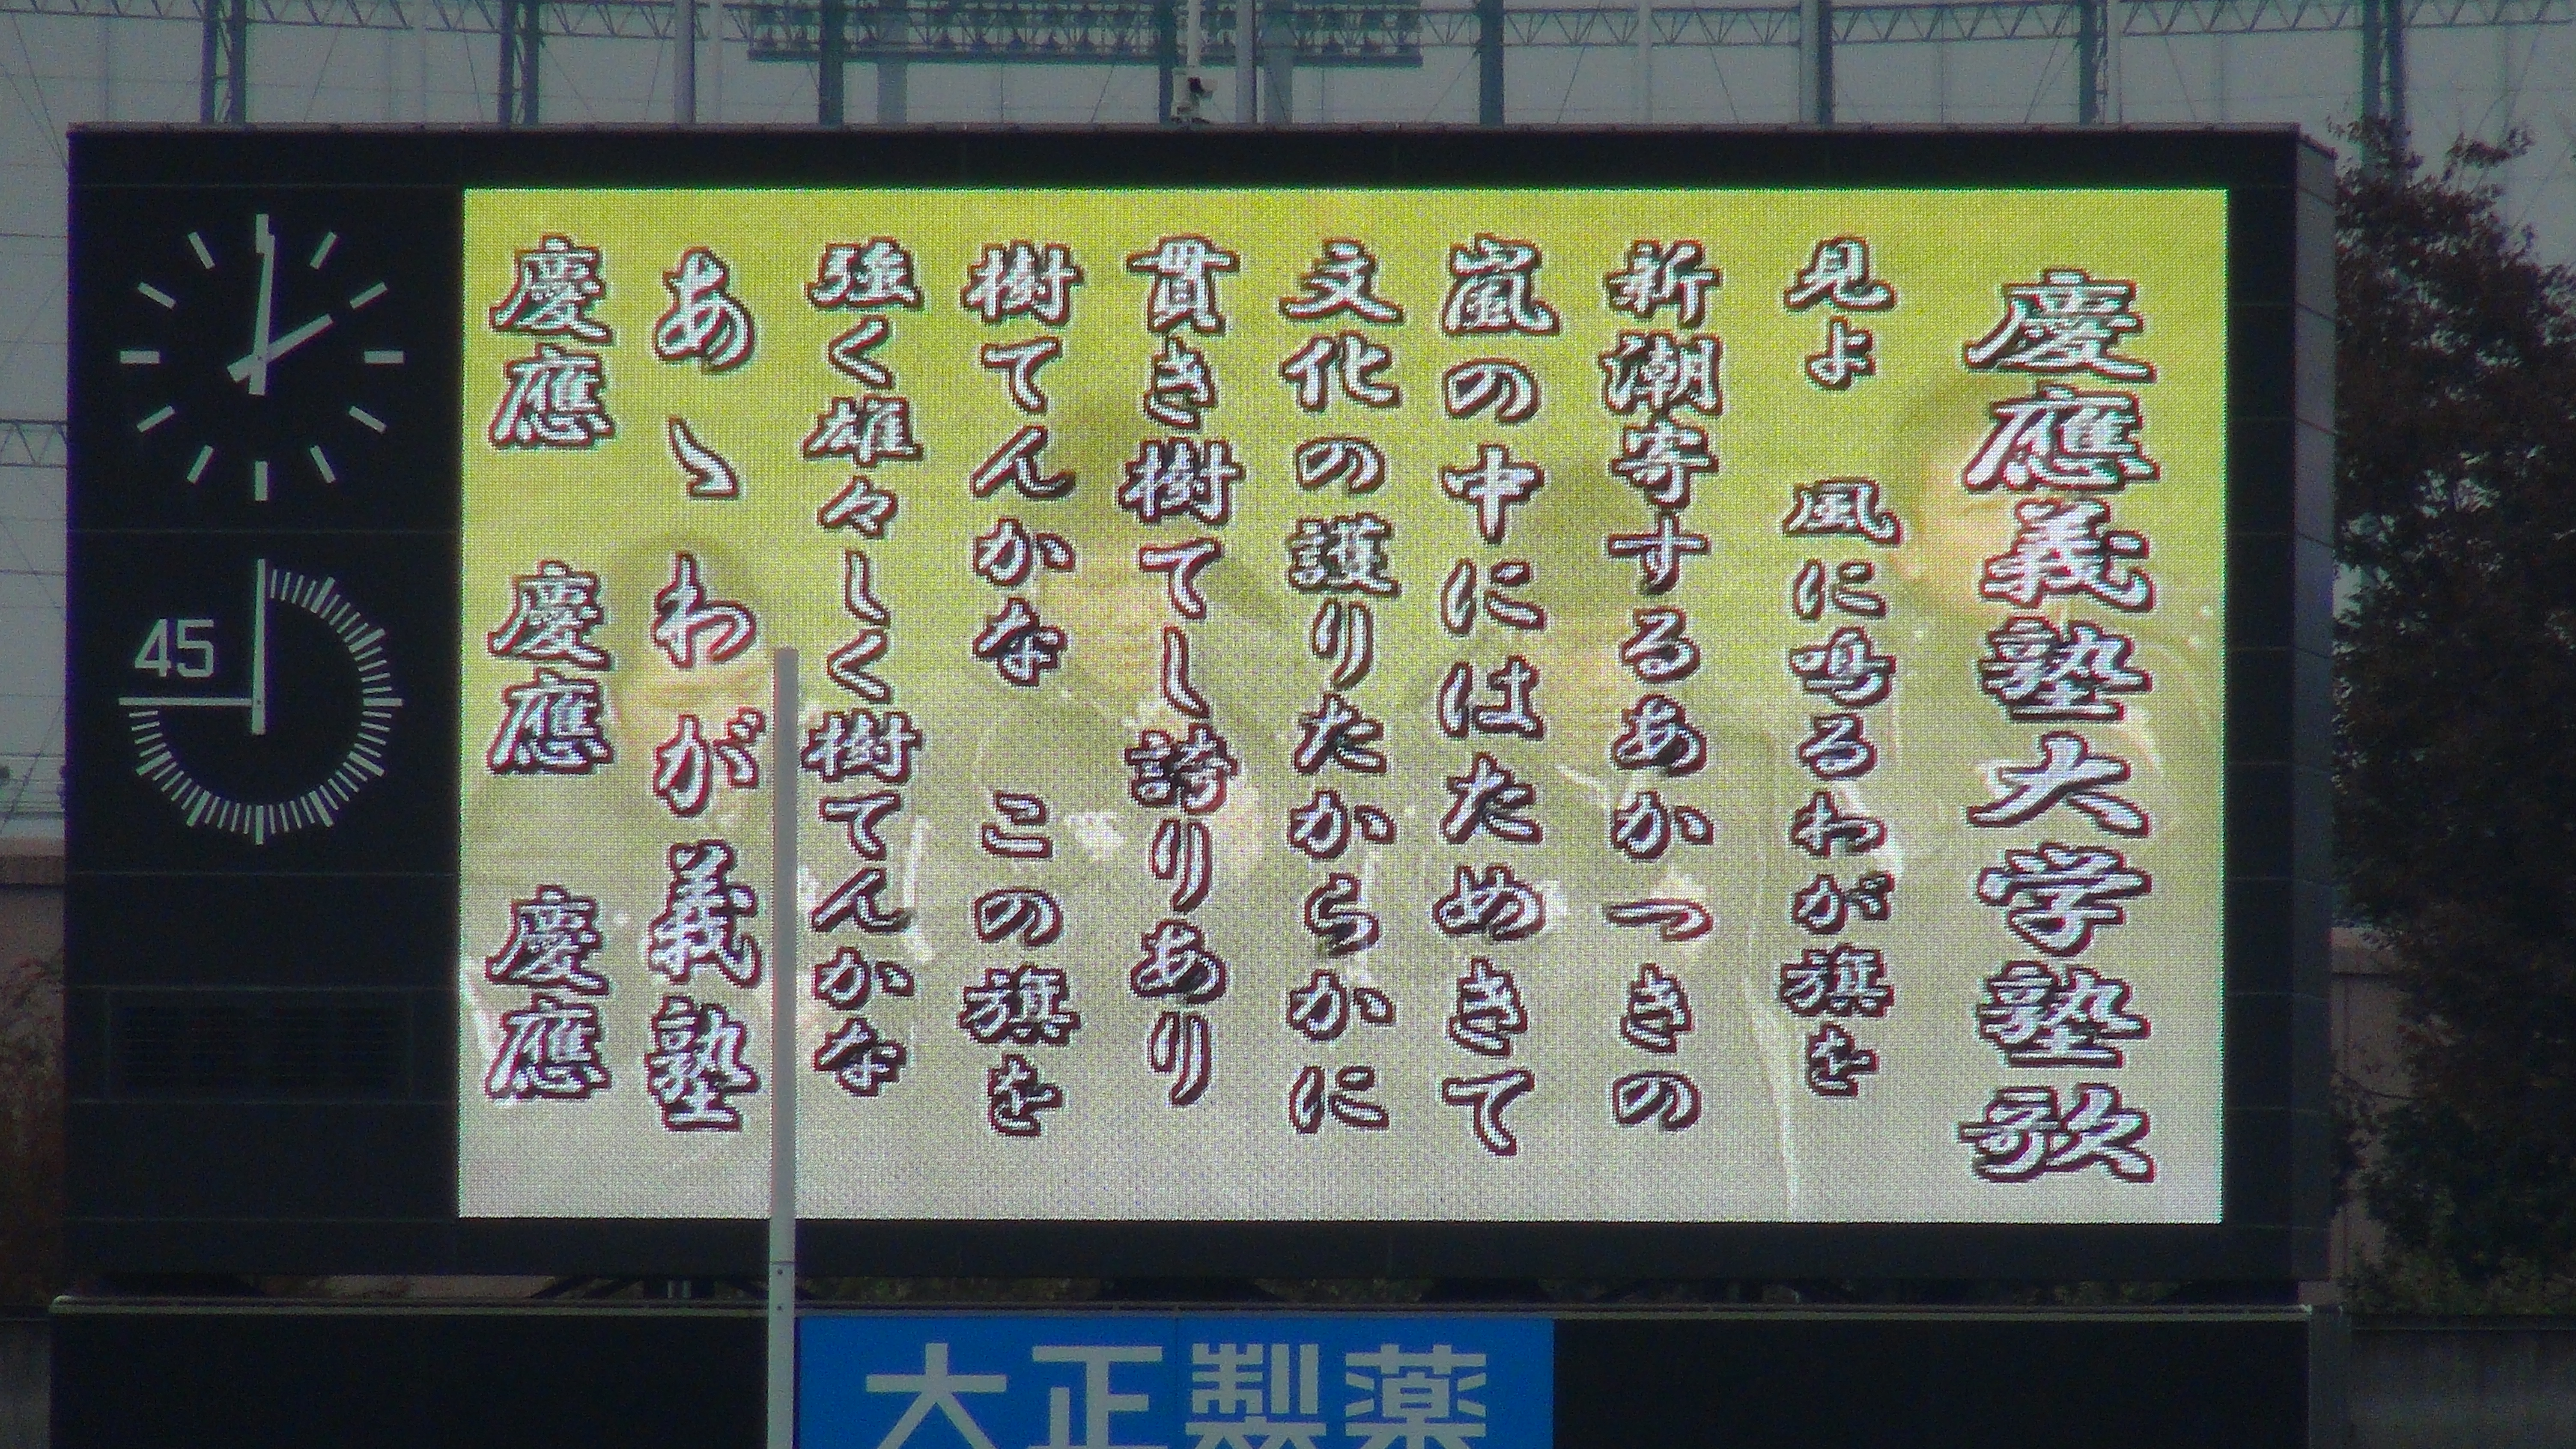 慶應義塾大学塾歌
見よ 風に鳴るわが旗を
新潮寄するあかつきの
嵐の中にはためきて
文化の護りたからかに
貫き樹てし誇りあり
樹てんかな この旗を
強く雄々しく樹てんかな
あゝ わが義塾
慶應 慶應 慶應
45
大正製薬